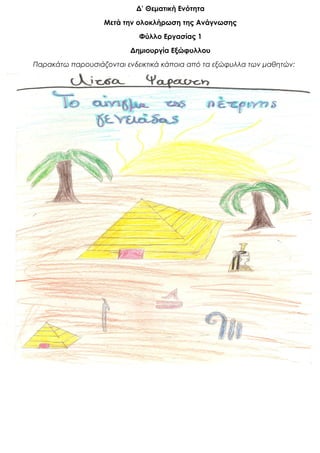 Δ' Θεματική Ενότητα
Μετά την ολοκλήρωση της Ανάγνωσης
Φύλλο Εργασίας 1
Δημιουργία Εξώφυλλου
Παρακάτω παρουσιάζονται ενδεικτικά κάποια από τα εξώφυλλα των μαθητών:
Λίτσα Ψαραύτη
Το αίνιγμα της πέτρινης
γενειάδας